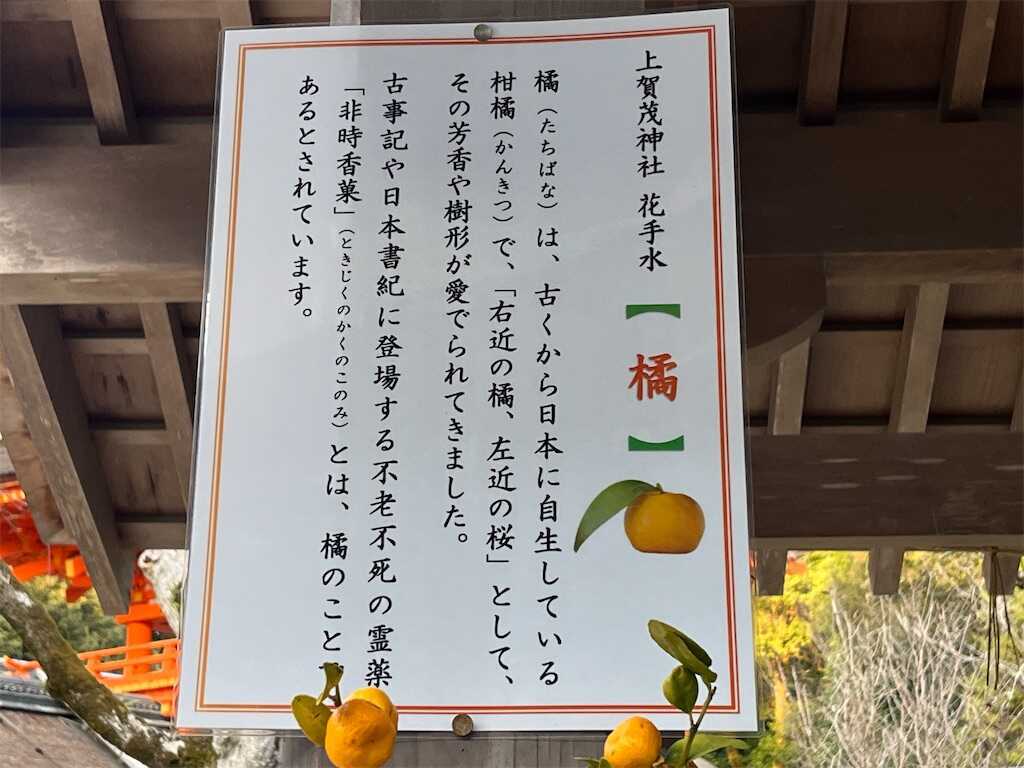 上賀茂神社 花手水 【橘】
橘（たちばな）は、古くから日本に自生している
柑橘（かんきつ）で、「右近の橘、左近の桜」として、
その芳香や樹形が愛でられてきました。
古事記や日本書紀に登場する不老不死の霊薬
「非時香菓」（ときじくのかくのこのみ）とは、橘のこと
あるとされています。